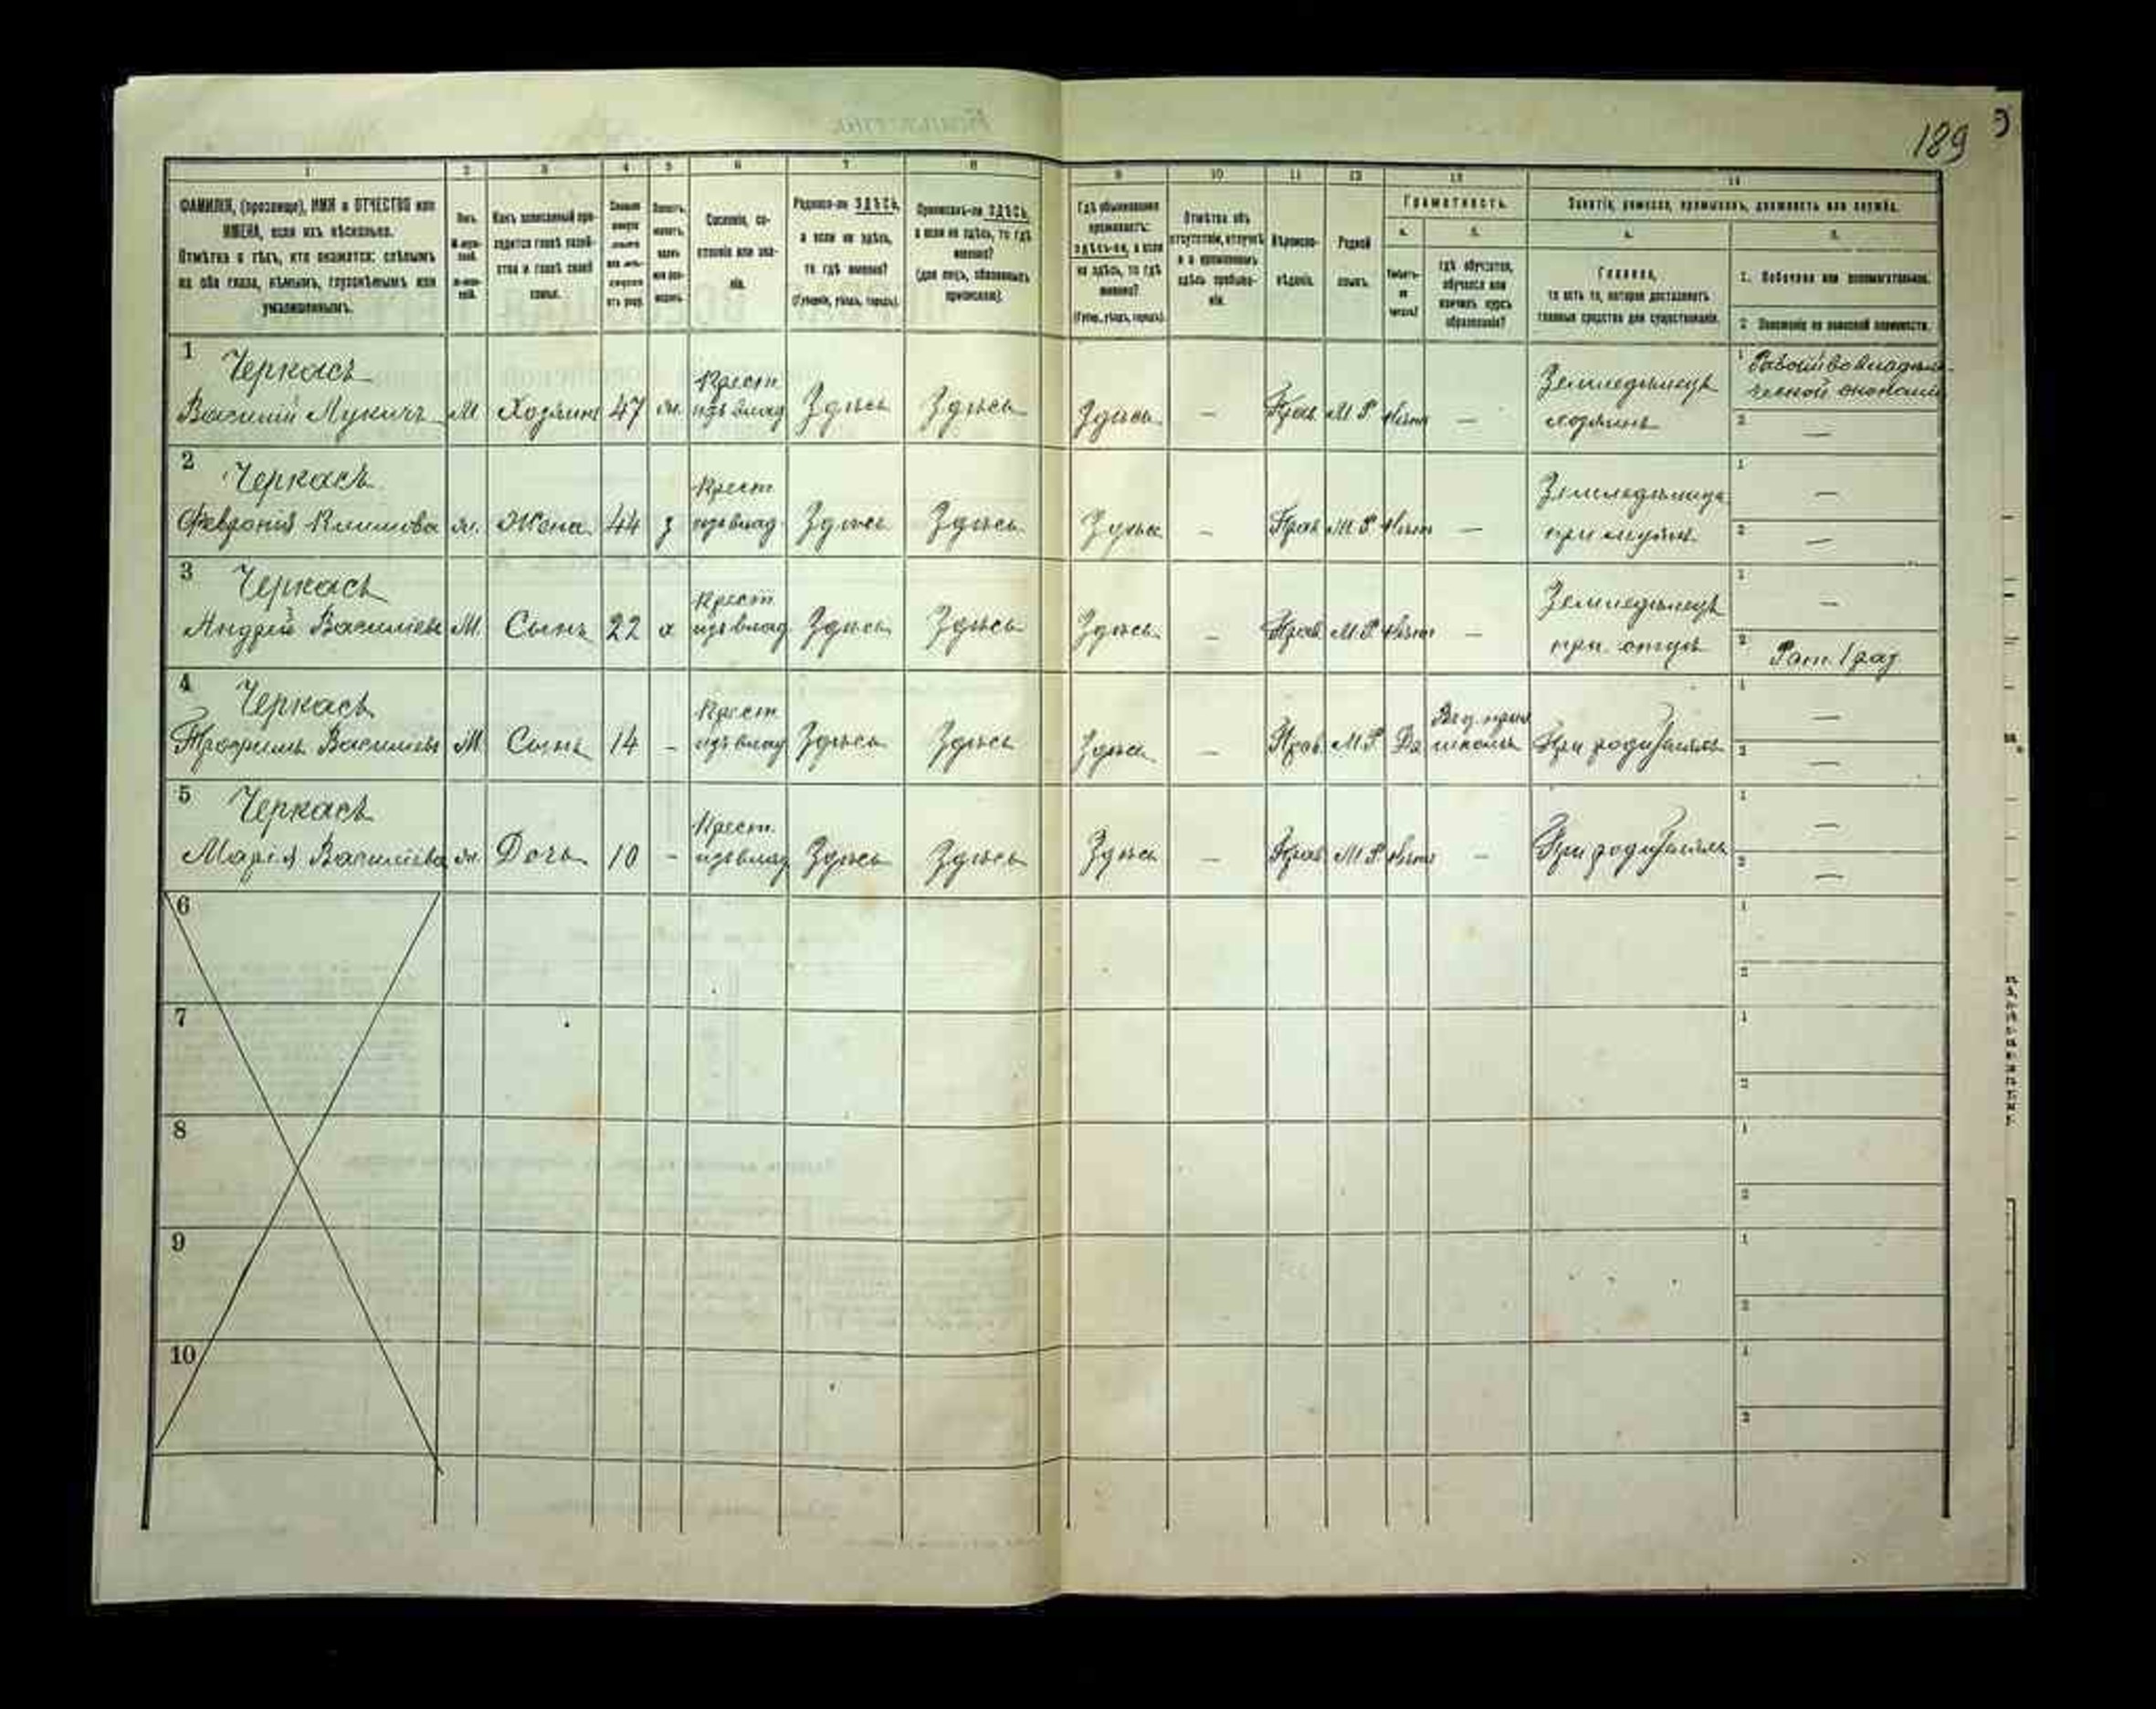 189
1 2 3 4 5 6 7 8 9 10 11 12 13 14
ФАМИЛІЯ, (прозвище), ИМЯ и ОТЧЕСТВО или
ИМЕНА, если ихъ нѣсколько.
Отмѣтка о тѣхъ, кто окажется: слѣпымъ
на оба глаза, нѣмымъ, глухонѣмымъ или
умалишеннымъ.
Полъ.
Какъ записанный при-
ходится главѣ хозяй-
ства и главѣ своей
семьи.
Сословіе, со-
стояніе или зва-
ніе.
Родился-ли ЗДѢСЬ,
а если не здѣсь,
то гдѣ именно?
(Губернія, уѣздъ, городъ).
Приписанъ-ли ЗДѢСЬ,
а если не здѣсь, то гдѣ
именно?
(для лицъ, обязанныхъ
припискою).
Гдѣ обыкновенно
проживаетъ:
здѣсь-ли, а если
не здѣсь, то гдѣ
именно?
(Губер., уѣздъ, городъ).
Отмѣтка объ
отсутствіи, отлучкѣ
и о временномъ
здѣсь пребыва-
ніи.
Вѣроиспо-
вѣданіе.
Родной
языкъ.
Грамотность.
а. б.
Умѣетъ-
ли
читать?
гдѣ обучается,
обучался или
кончилъ курсъ
образованія?
Занятіе, ремесло, промыселъ, должность или служба.
а. б.
Главное,
то есть то, которое доставляетъ
главныя средства для существованія.
1. Побочное или вспомогательное.
2 Положеніе по воинской повинности.
1 Черкасъ
Василій Лукичъ М Хозяинъ 47 ж. Крест. изъ влад Здѣсь Здѣсь Здѣсь — Прав. М Р. Нѣтъ — Земледѣлецъ хозяинъ
1 Рабочій во владѣль-
ческой экономіи
2 —
2 Черкасъ
Февронія Климова ж. Жена 44 з Крест изъ влад. Здѣсь Здѣсь Здѣсь — Прав. М Р. Нѣтъ — Земледѣлица при мужѣ
1 —
2 —
3 Черкасъ
Андрей Васильевъ М. Сынъ 22 х Крест изъ влад Здѣсь Здѣсь Здѣсь — Прав. М. Р. Нѣтъ — Земледѣлецъ при отцѣ
1 —
2 Рат. 1 раз
4 Черкасъ
Трофимъ Васильевъ М Сынъ 14 - Крест изъ влад Здѣсь Здѣсь Здѣсь — Прав. М. Р. Да школѣ При родителяхъ
1 —
2 —
5 Черкасъ
Марія Васильева ж. Дочь 10 - Крест. изъ влад Здѣсь Здѣсь Здѣсь — Прав. М. Р. Нѣтъ — При родителяхъ
1 —
2 —
6 1
2
7 1
2
8 1
2
9 1
2
10 1
2